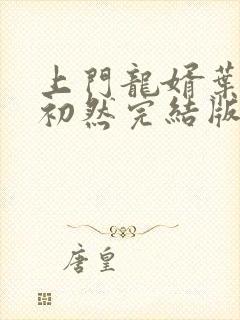 上門龍婿葉
初然完結版
唐皇